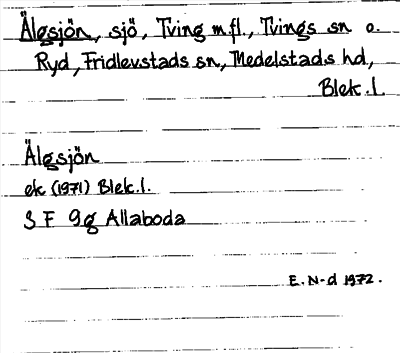 Älgsjön, sjö, Tving m fl., Tvings sn o.
Ryd, Fridlevstads sn, Medelstads hd,
Blek. l.
Älgsjön
ek (1971) Blek. l.
3 F 9g Allaboda
E. N-d 1972.